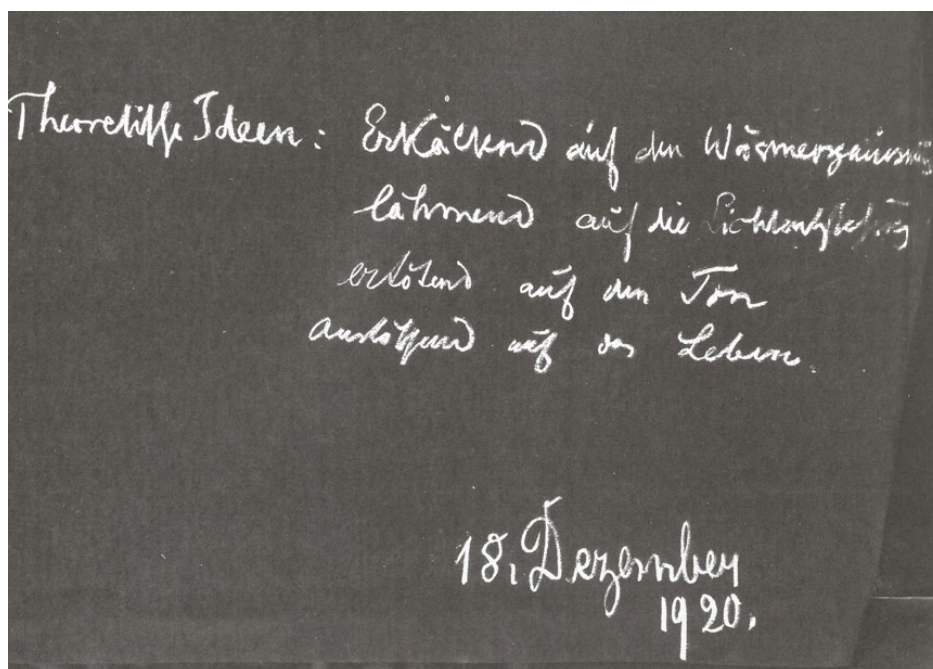 Theoretische Ideen: Erkältend auf den Wärmeorganismus
lähmend auf die Lichtentstehung
ertötend auf den Ton
auslöschend auf das Leben.
18. Dezember
1920.